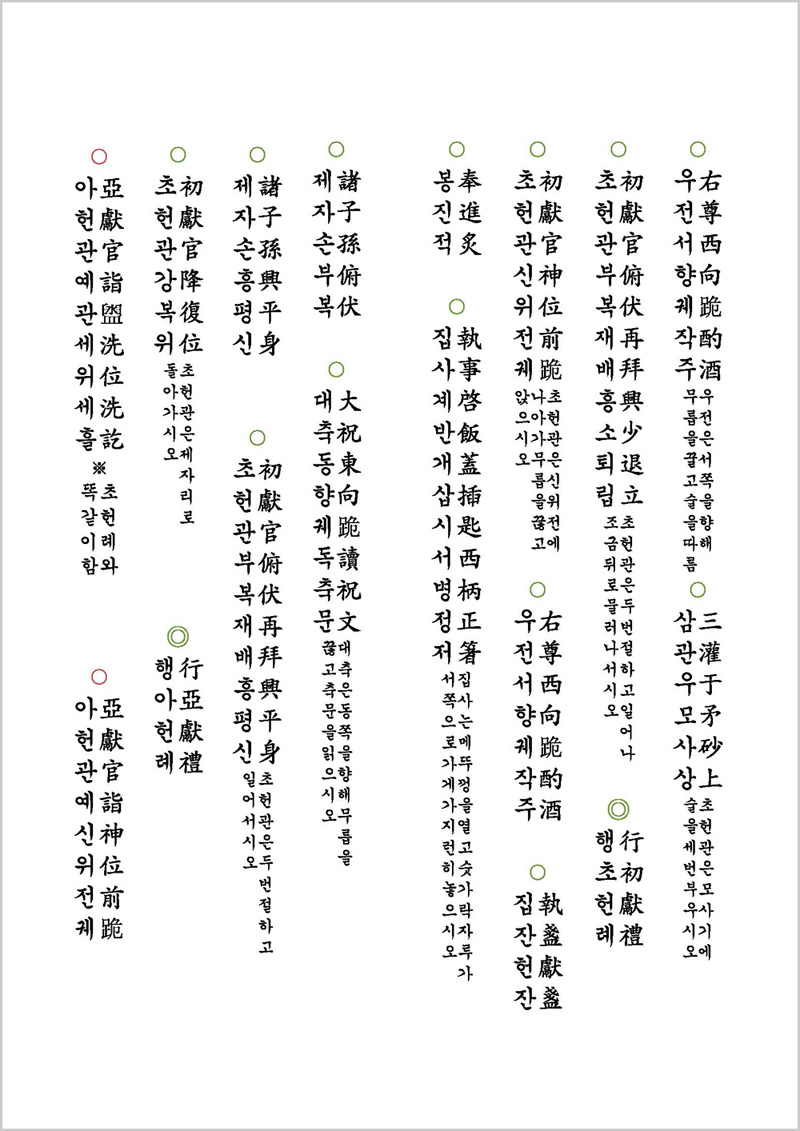 ○
右尊西向跪酌酒
우전서향궤작주
우전은서쪽을향해
무릅을꿀고술을따름
○
三灌于矛砂上
삼관우모사상
초헌관은모사기에
술을세번부우시오
○
初獻官俯伏再拜興少退立
초헌관부복재배흥소퇴립
초헌관은두번절하고일어나
조금뒤로물러나서시오
◎
行初獻禮
행초헌례
○
初獻官神位前跪
초헌관신위전궤
초헌관은신위전에
나아가무릅을끊고
앉으시오
○
右尊西向跪酌酒
우전서향궤작주
○
執盞獻盞
집잔헌잔
○
奉進炙
봉진적
○
執事啓飯蓋揷匙西柄正箸
집사계반개삽시서명정저
집사는메뚜껑을열고숫가락자루가
서쪽으로가게가지런히놓으시오
○
諸子孫俯伏
제자손부복
○
大祝東向跪讀祝文
대축동향궤독축문
대축은동쪽을향해무릅을
끊고축문을읽으시오
○
諸子孫興平身
제자손흥평신
○
初獻官俯伏再拜興平身
초헌관부복재배흥평신
초헌관은두번절하고
일어서시오
○
初獻官降復位
초헌관강복위
초헌관은제자리로
돌아가시오
◎
行亞獻禮
행아헌례
○
亞獻官詣盥洗位洗訖
아헌관예관세위세흘
※
초헌례와
똑같이함
○
亞獻官詣神位前跪
아헌관예신위전궤